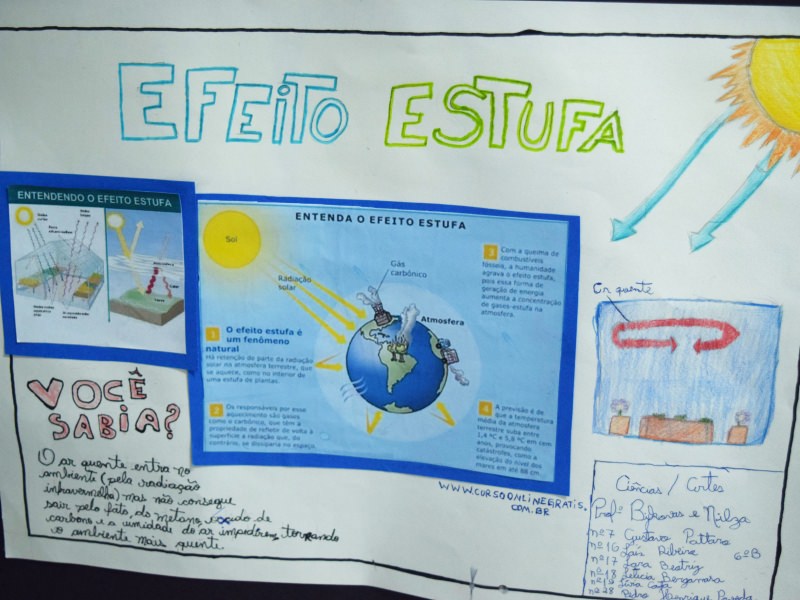 EFEITO ESTUFA
ENTENDENDO O EFEITO ESTUFA
ENTENDA O EFEITO ESTUFA
Sol
Radiação
solar
Gás
carbônico
Atmosfera
1 O efeito estufa é
um fenômeno
natural
Há retenção de parte da radiação
solar na atmosfera terrestre, que
se aquece, como no interior de
uma estufa de plantas.
2 Os responsáveis por esse
aquecimento são gases
como o carbônico, que têm a
propriedade de refletir de volta à
superfície a radiação que, do
contrário, se dissiparia no espaço.
3 Com a queima de
combustíveis
fósseis, a humanidade
agrava o efeito estufa,
pois essa forma de
geração de energia
aumenta a concentração
de gases-estufa na
atmosfera.
4 A previsão é de
que a temperatura
média da atmosfera
terrestre suba entre
1,4 ºC e 5,8 ºC em cem
anos, provocando
catástrofes, como a
elevação do nível dos
mares em até 88 cm.
WWW.CURSOONLINEGRATIS.
COM.BR
VOCÊ
SABIA?
O ar quente entra no
ambiente (pela radiação
infravermelha) mas não consegue
sair pelo fato do metano, de
carbono e a umidade do ar impedirem, tornando
o ambiente mais quente.
Ar quente
Ciências / Artes
Profª e Nilza
nº 7 Gustavo Pattaro
nº 16 Laís Ribeiro 6ºB
nº 17 Lara Beatriz
nº 18 Letícia Bergamara
nº 19
nº 28 Pedro Henrique